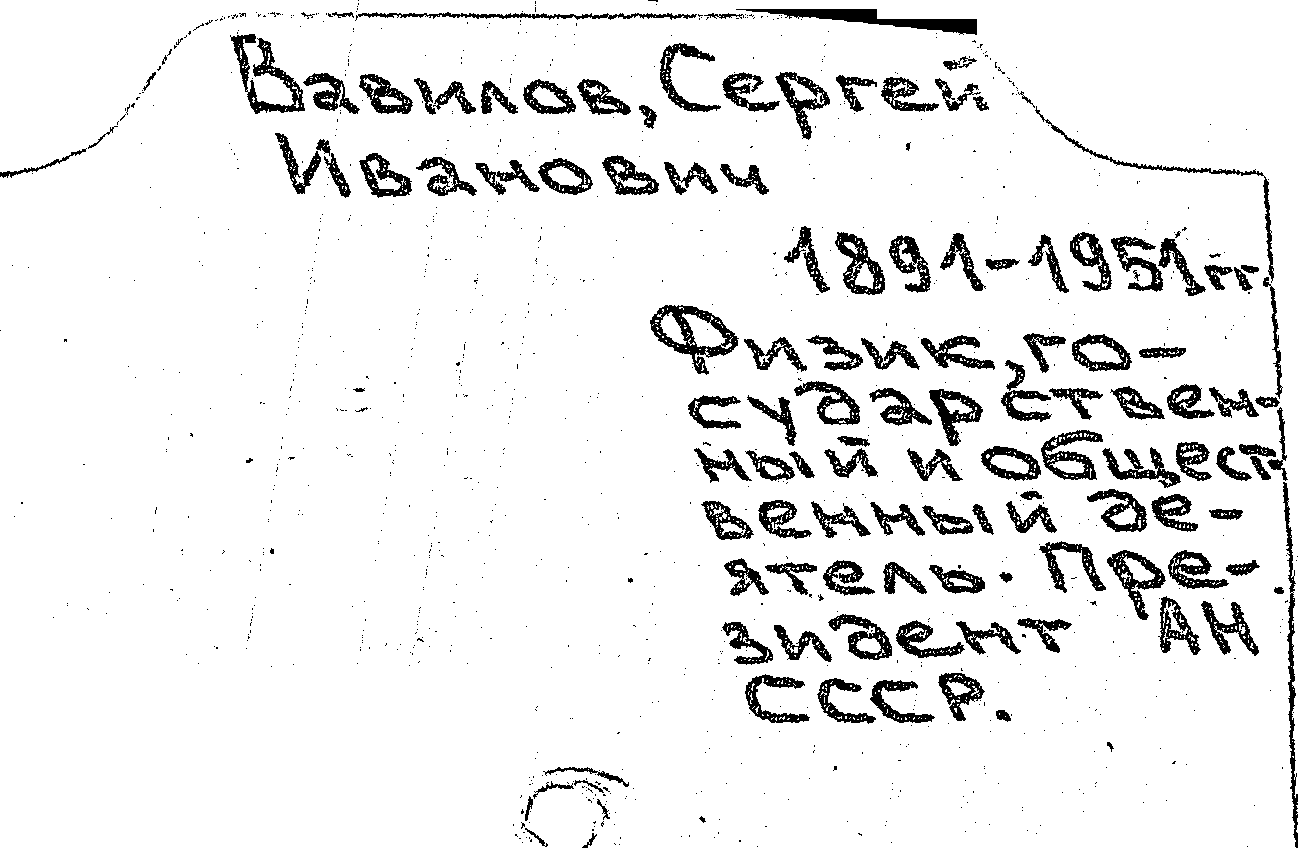 Вавилов, Сергей
Иванович
1891-1951гг.
Физик, го-
сударствен-
ный и общест-
венный де-
ятель. Пре-
зидент АН
СССР.